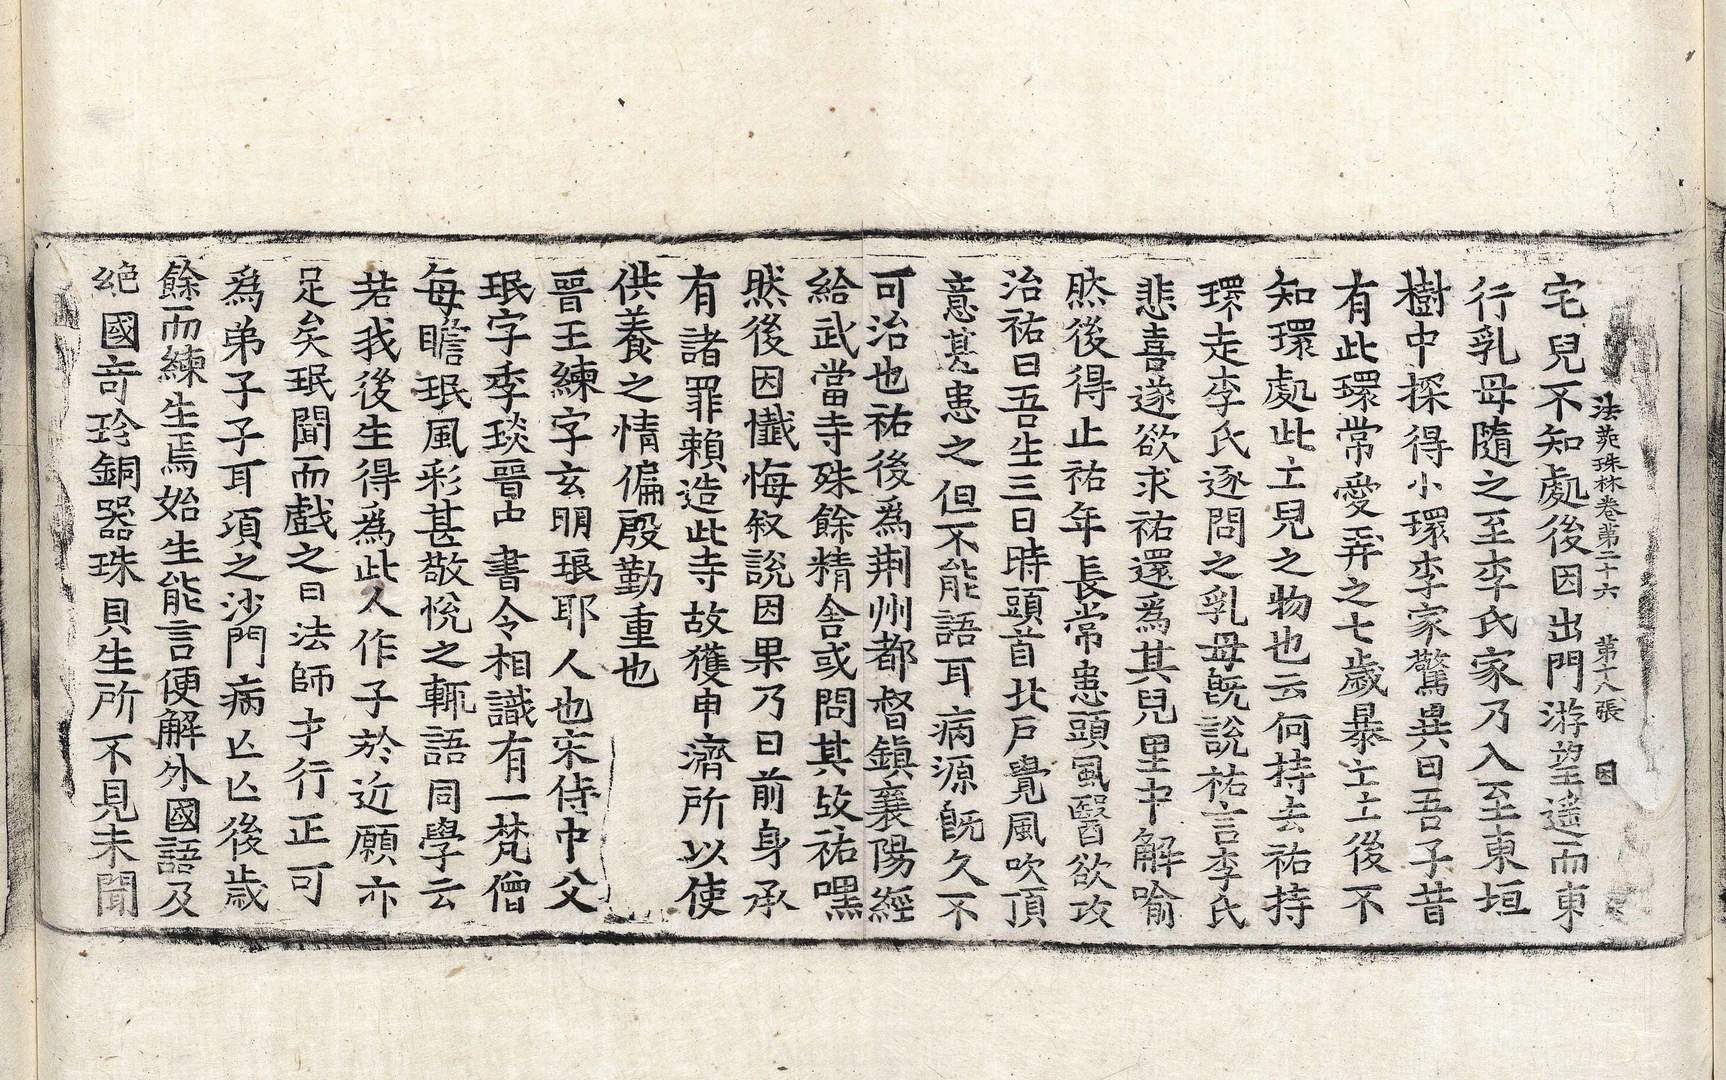 法苑珠林卷第二十六 第十八張 因
宅兒不知處後因出門游望遥而東
行乳母隨之至李氏家乃入至東垣
樹中探得小環李家驚異曰吾子昔
有此環常愛弄之七歲暴亡亡後不
知環處此亡兒之物也云何持去祐持
環走李氏逐問之乳母旣說祐言李氏
悲喜遂欲求祐還爲其兒里中解喻
然後得止祐年長常患頭風醫欲攻
治祐曰吾生三日時頭首北戶覺風吹頂
意甚患之但不能語耳病源旣久不
可治也祐後爲荆州都督鎭襄陽經
給武當寺殊餘精舍或問其故祐嘿
然後因懺悔叙說因果乃曰前身承
有諸罪賴造此寺故獲申濟所以使
供養之情偏殷勤重也
晉王練字玄明琅耶人也宋侍中父
珉字季琰晉中書令相識有一梵僧
每瞻珉風彩甚敬悅之輒語同學云
若我後生得爲此人作子於近願亦
足矣珉聞而戲之曰法師才行正可
爲弟子子耳湏之沙門病亡亡後歲
餘而練生焉始生能言便解外國語及
絶國竒珍銅器珠貝生所不見未聞